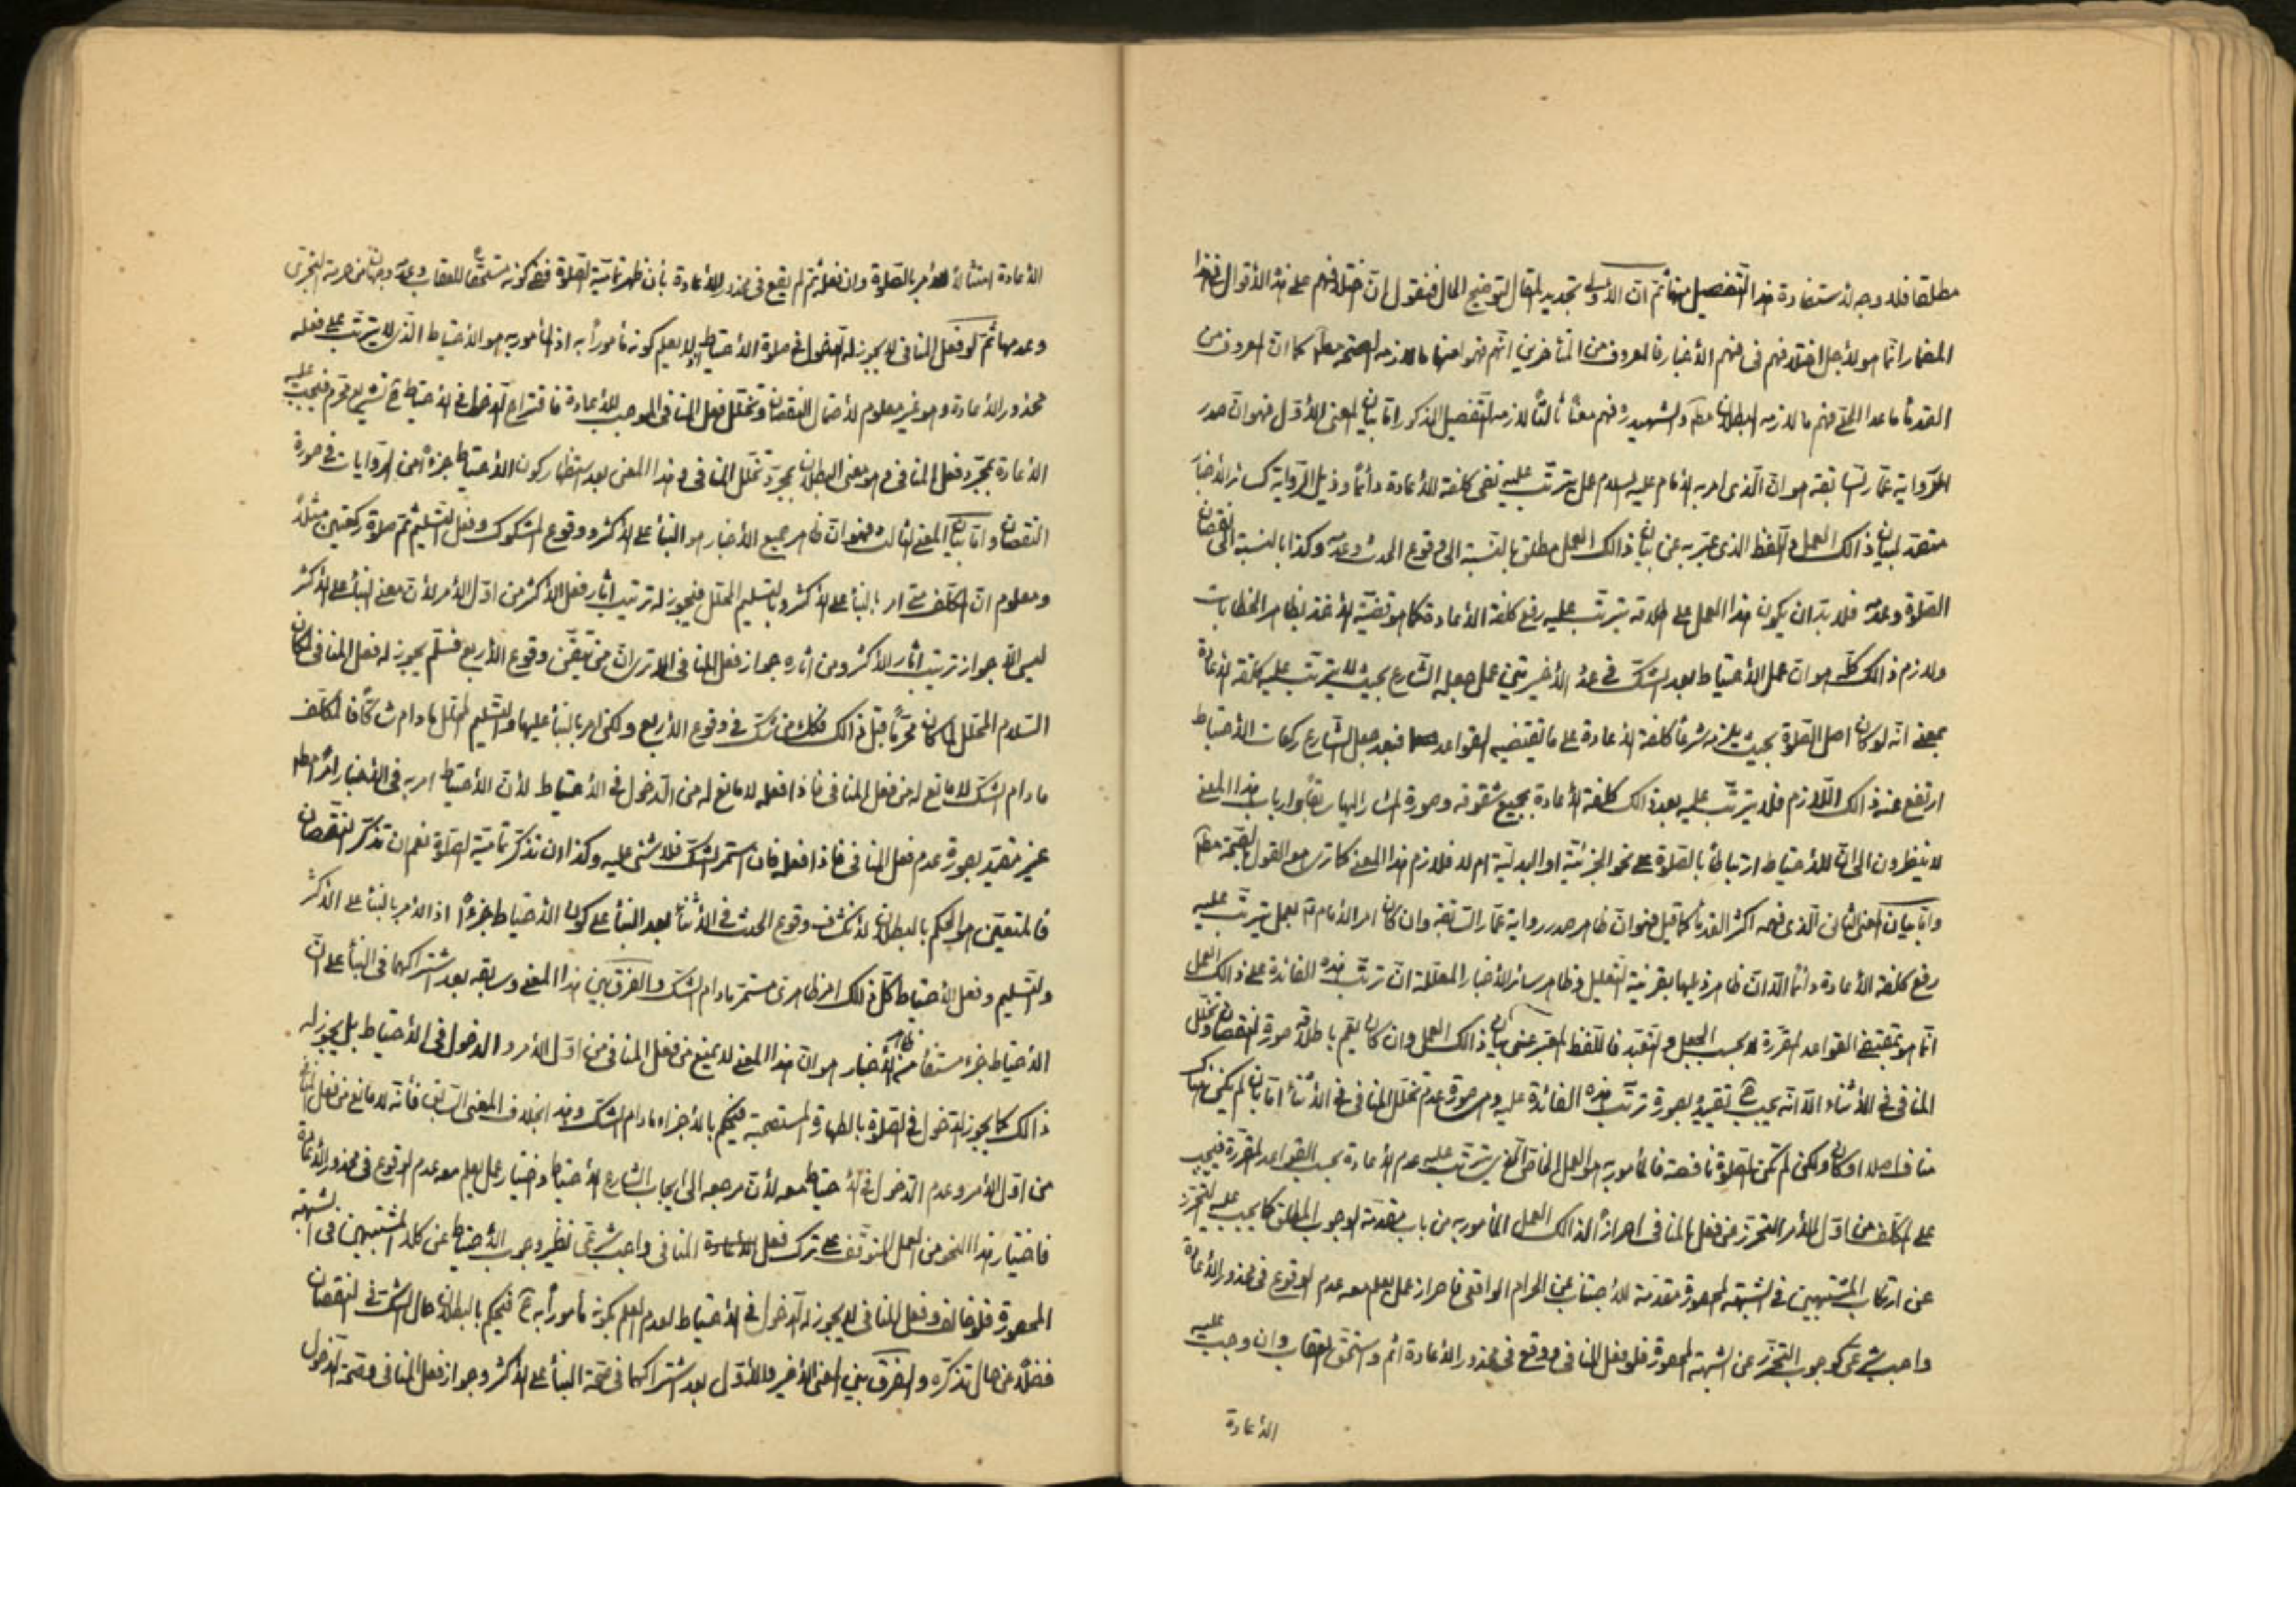 مطلقا فلا وجه لاستفادة هذا التفصيل منها ثم ان الأولى تجديد المقال لتوضيح الحال فنقول ان اختلافهم على هذه الأقوال في هذا
المضمار انما هو لأجل اختلافهم في فهم الأخبار فالمعروف من المتأخرين انهم فهموا منها ما لازمه الصحة مطلقا كما ان المعروف من
القدماء ما عدا الحلي فهم ما لازمه البطلان مط والشهيد ره فهم معنا ثالثا لازمه التفصيل المذكور اما بيان المعنى الأول فهو ان صدر
الرواية عمار السابقة هو ان الذي امر به الإمام عليه السلام عمل يترتب عليه نفي كلفة الأعادة دائما وذيل الرواية كسائر الأخبار
متعقد لبيان ذالك العمل واللفظ الذي عبر به عن بيان ذالك العمل مطلق بالنسبة الى وقوع الحدث وعدمه وكذا بالنسبة الى نقصان
الصلوة وعدمه فلا بد ان يكون هذا العمل على اطلاقه يترتب عليه رفع كلفة الأعادة كما هو قضية الأخذ بظاهر الخطابات
ولازم ذالك كله هو ان عمل الأحتياط بعد الشك في عدد الأخيرتين عمل جعله الشارع بحيث لا يترتب عليه كلفة الأعادة
بمعنى انه لو كان اصل الصلوة بحيث يلزمه شرعا كلفة الأعادة على ما تقتضيه القواعد فبعد جعل الشارع ركعات الأحتياط
ارتفع عنه ذالك اللازم فلا يترتب عليه بعد ذالك كلفة الأعادة بجميع شقوقه وصورة المشار اليها سابقا وارباب هذا المعنى
لا ينظرون الى ان للأحتياط ارتباطا بالصلوة على نحو الجزئية او البدلية ام لا فلازم هذا المعنى كما ترى هو القول بالصحة مطلقا
واما بيان المعنى الثاني الذي فهمه اكثر القدماء كما قيل فهو ان ظاهر صدر رواية عمار السابقة وان كان امر الأمام ع بعمل يترتب عليه
رفع كلفة الأعادة دائما الا ان ظاهر ذيلها بقرينة التعليل وظاهر سائر الأخبار المعللة ان ترتب هذه الفائدة على ذالك العمل
انما هو بمقتضى القواعد المقررة لا بحسب الجعل والتعبد فاللفظ المعبر عن بيان ذالك العمل وان كان يعم باطلاقه صورة النقصان وتخلل
المنافي في الأثناء الا انه يجب ح تقييده بصورة ترتب هذه الفائدة عليه وهي صورة عدم تخلل المنافي في الأثناء اما بان لم يكن هناك
مناف اصلا او كان ولكن لم تكن الصلوة ناقصة فالمأمور به هو العمل الخاص الذي يترتب عليه عدم الأعادة بحسب القواعد المقررة فيجب
على المكلف من اول الأمر التحرز عن فعل المنافي احرازا لذالك العمل المأمور به من باب مقدمة الوجوب المطلق كما يجب عليه التحرز
عن ارتكاب المشتبهين في الشبهة المحصورة مقدمة للأجتناب عن الحرام الواقعي فاحراز عمل يعلم معه عدم الوقوع في محذور الأعادة
واجب شرعي كوجوب التحرز عن الشبهة المحصورة فلو فعل المنافي ووقع في محذور الأعادة اثم واستحق العقاب وان وجبت عليه
الأعادة
الأعادة امتثالا للأمر بالصلوة وان فعله ثم لم يقع في محذور الأعادة بأن ظهر تمامية الصلوة ففي كونه مستحقا للعقاب وعدمه وجهان من حرمة التجري
وعدمها ثم لو فعل المنافي لا يجوز له الدخول في صلوة الأحتياط اذ لا يعلم كونه مأمورا به اذ المأمور به هو الأحتياط الذي لا يترتب على فعله
محذور الأعادة وهو غير معلوم لأحتمال النقصان وتخلل فعل المنافي الموجب للأعادة فاقتراح الدخول في الأحتياط ح تشريع محرم فيجب عليه
الأعادة بمجرد فعل المنافي وهو معنى البطلان بمجرد تخلل المنافي وهذا المعنى بعد استظهار كون الأحتياط جزءا من الروايات في صورة
النقصان واما بيان المعنى الثالث فهو ان ظاهر جميع الأخبار هو البناء على الأكثر ووقوع المشكوك وفعل التسليم ثم صلوة ركعتين مثلا
ومعلوم ان المكلف متى امر بالبناء على الأكثر وبالتسليم المحلل فيجوز له ترتيب آثار فعل الأكثر من اول الأمر لأن معنى البناء على الأكثر
ليس الا جواز ترتيب آثار الأكثر ومن آثاره جواز فعل المنافي الا ترى ان من تيقن وقوع الأربع فسلم يجوز له فعل المنافي لمكان
السلام المحلل لما كان محرما قبل ذالك فكذا من شك في وقوع الأربع ولكن امر بالبناء عليها والتسليم المحلل ما دام شاكا فالمكلف
ما دام الشك لا مانع له من فعل المنافي فاذا فعله لا مانع له من الدخول في الأحتياط لأن الأحتياط امر به في الأخبار امرا مطلقا
غير مقيد بصورة عدم فعل المنافي فاذا فعله فان استمر الشك فلا شئ عليه وكذا ان تذكر تمامية الصلوة نعم ان تذكر النقصان
فالمتعين هو الحكم بالبطلان لأنكشاف وقوع الحدث في الأثناء بعد البناء على كون الأحتياط جزءا اذ الأمر بالبناء على الأكثر
والتسليم وفعل الأحتياط كل ذلك امر ظاهري مستمر ما دام الشك والفرق بين هذا المعنى وسابقه بعد اشتراكهما في البناء على ان
الأحتياط جزء مستفاد من ظاهر الأخبار هو ان هذا المعنى لا يمنع من فعل المنافي من اول الأمر والدخول في الأحتياط بل يجوز له
ذالك كما يجوز الدخول في الصلوة بالطهارة المستصحبة فيحكم بالأجزاء ما دام الشك وهذا بخلاف المعنى السابق فأنه لا مانع من فعل المنافي
من اول الأمر وعدم الدخول في الأحتياط معه لأن مرجعه الى ايجاب الشارع الأحتياط واختيار عمل يعلم معه عدم الوقوع في محذور الأعادة
فاختيار هذا النحو من العمل المتوقف على ترك فعل المنافي واجب شرعي نظير وجوب الأحتياط عن كلا المشتبهين في الشبهة
المحصورة فلو خالف وفعل المنافي لا يجوز له الدخول في الأحتياط لعدم العلم بكونه مأمورا به ح فيحكم بالبطلان حال الشك في النقصان
فضلا عن حال تذكره والفرق بين المعنى الأخير والأول بعد اشتراكهما في صحة البناء على الأكثر وجواز فعل المنافي وصحة الدخول